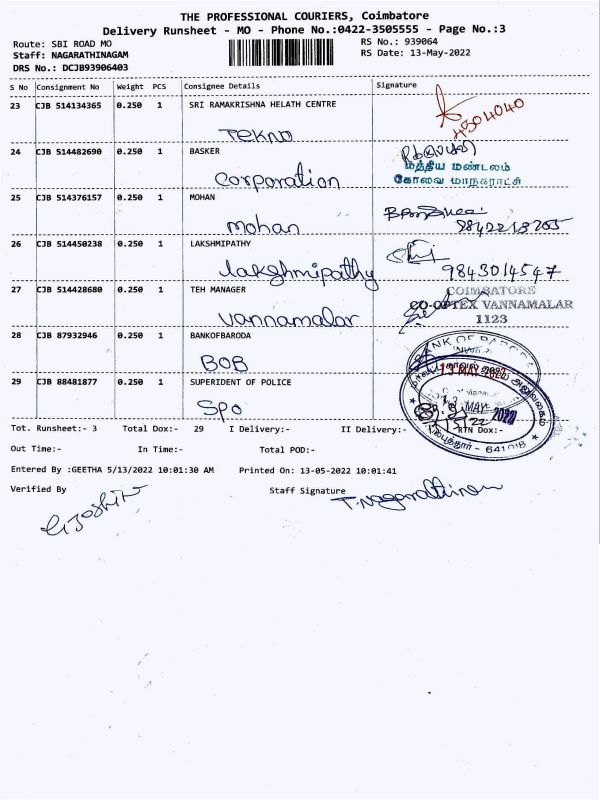 THE PROFESSIONAL COURIERS, Coimbatore
Delivery Runsheet - MO - Phone No.:0422-3505555 - Page No.:3
Route: SBI ROAD MO RS No.: 939064
Staff: NAGARATHINAGAM RS Date: 13-May-2022
DRS No.: DCJB93906403
S No Consignment No Weight PCS Consignee Details Signature
23 CJB 514134365 0.250 1 SRI RAMAKRISHNA HELATH CENTRE
TEKNO 4504040
24 CJB 514482690 0.250 1 BASKER
Corporation மத்திய மண்டலம்
கோவை மாநகராட்சி
25 CJB 514376157 0.250 1 MOHAN
Mohan 9842213705
26 CJB 514450238 0.250 1 LAKSHMIPATHY
Lakshmipathy 9843014547
27 CJB 514428680 0.250 1 TEH MANAGER COIMBATORE
Vannamalar CO-OPTEX VANNAMALAR
1123
28 CJB 87932946 0.250 1 BANKOFBARODA BANK OF BARODA
BOB 13 MAY 2022
29 CJB 88481877 0.250 1 SUPERIDENT OF POLICE
SPO MAY 2022
Tot. Runsheet:- 3 Total Dox:- 29 I Delivery:- II Delivery:- RTN Dox:-
641018
Out Time:- In Time:- Total POD:-
Entered By :GEETHA 5/13/2022 10:01:30 AM Printed On: 13-05-2022 10:01:41
Verified By Staff Signature
T. Nagarathinam